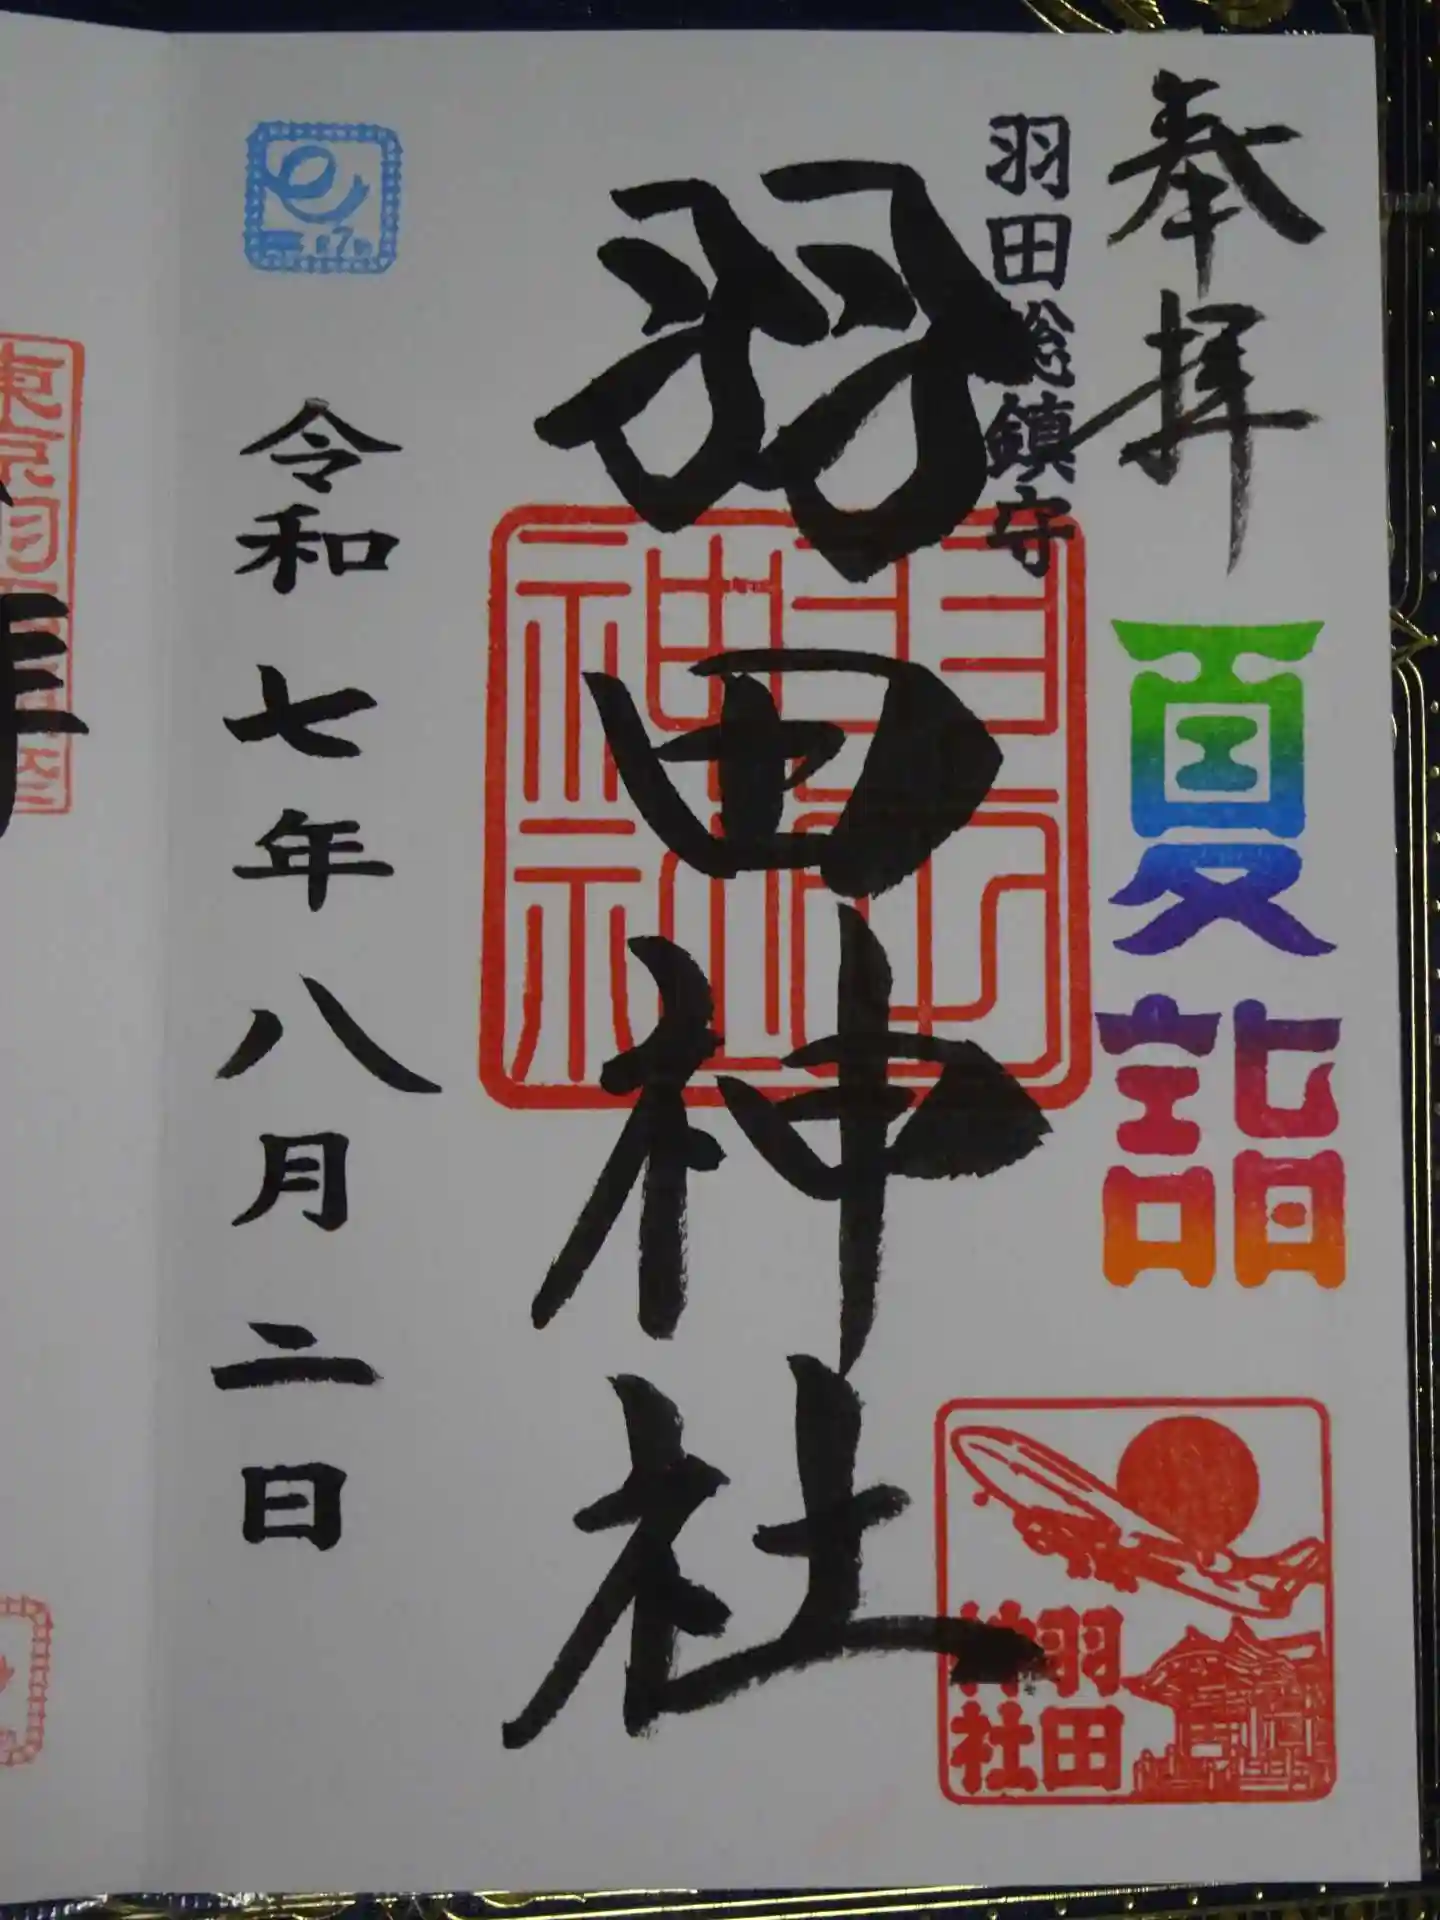 奉拝
夏詣
羽田総鎮守
羽田神社
羽田神社
羽田
神社
令和七年八月二日
7
年